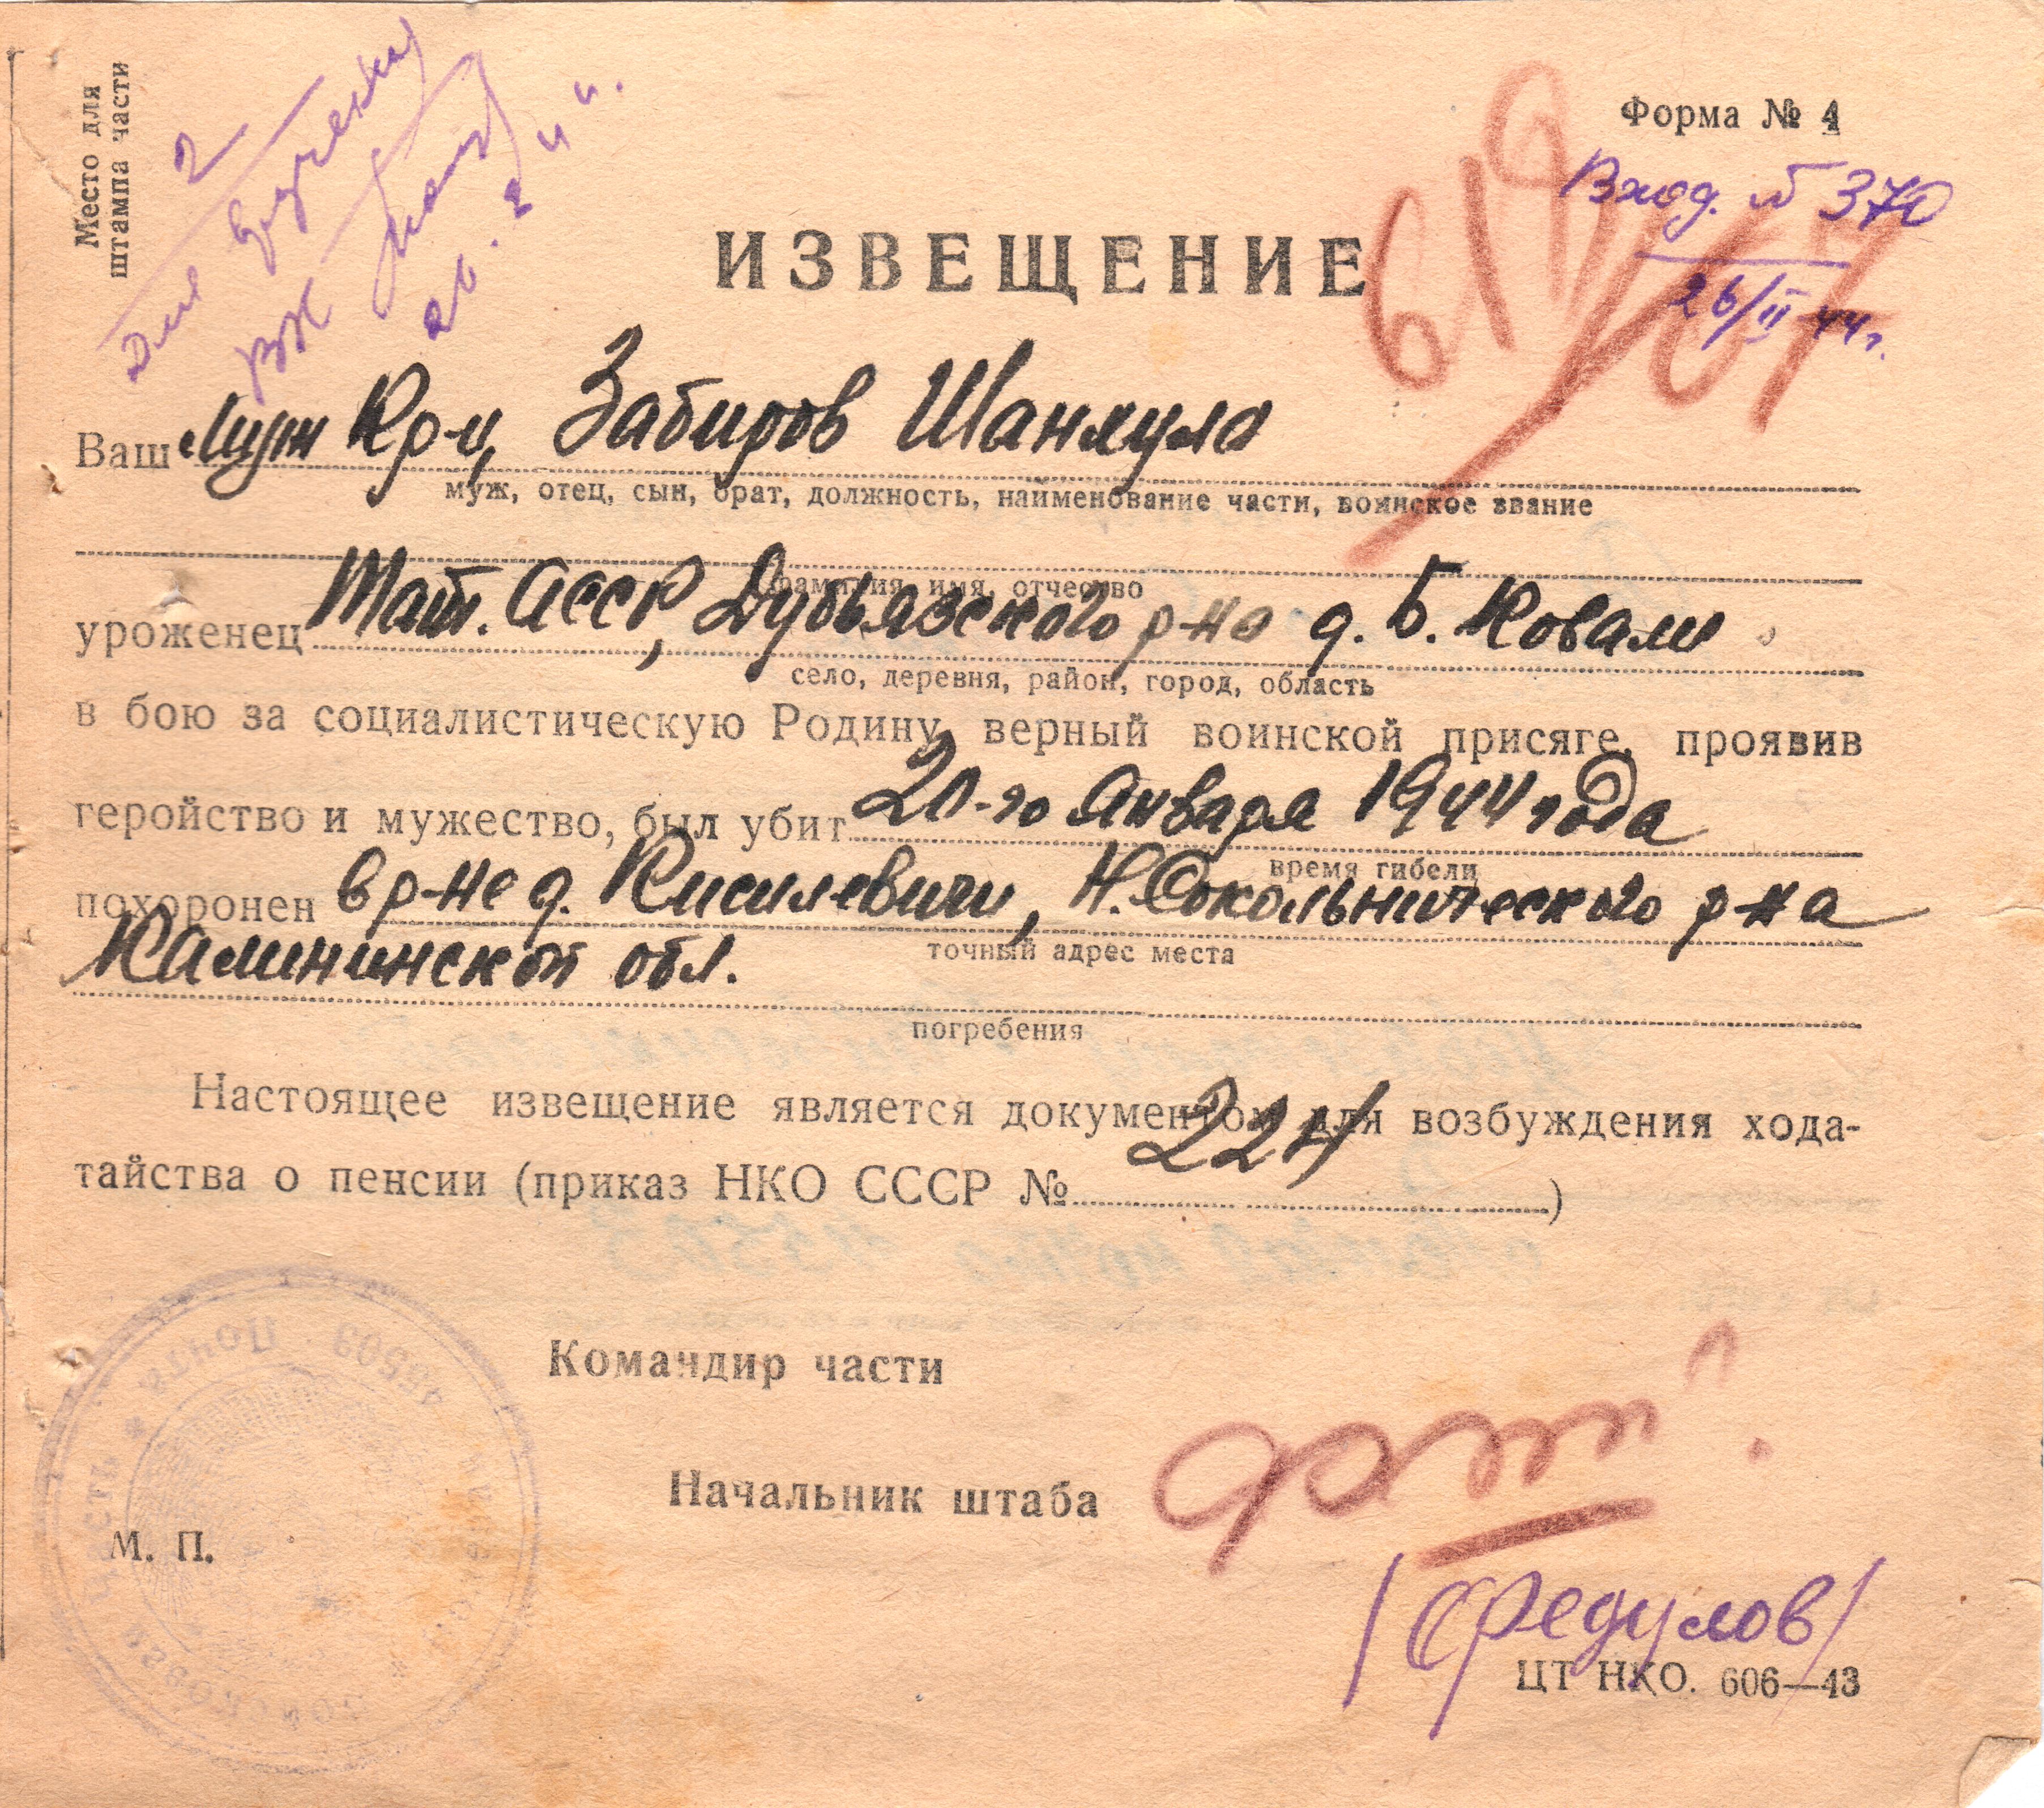 Место для
штампа части
Форма № 4
Вход. № 370
26/II 44 г.
619/67
ИЗВЕЩЕНИЕ
Ваш муж Кр-ц, Забиров Шанкула
муж, отец, сын, брат, должность, наименование части, воинское звание
фамилия, имя, отчество
уроженец Тат. АССР, Дубьязского р-на д. Б. Ковали
село, деревня, район, город, область
в бою за социалистическую Родину, верный воинской присяге, проявив
геройство и мужество, был убит 20-го Января 1944 года
время гибели
похоронен в р-не д. Кисилевичи, Н. Сокольнического р-на
точный адрес места
Калининской обл.
погребения
Настоящее извещение является документом для возбуждения хода-
тайства о пенсии (приказ НКО СССР № 224)
Командир части
Начальник штаба
М. П.
/Федулов/
ЦТ НКО. 606—43